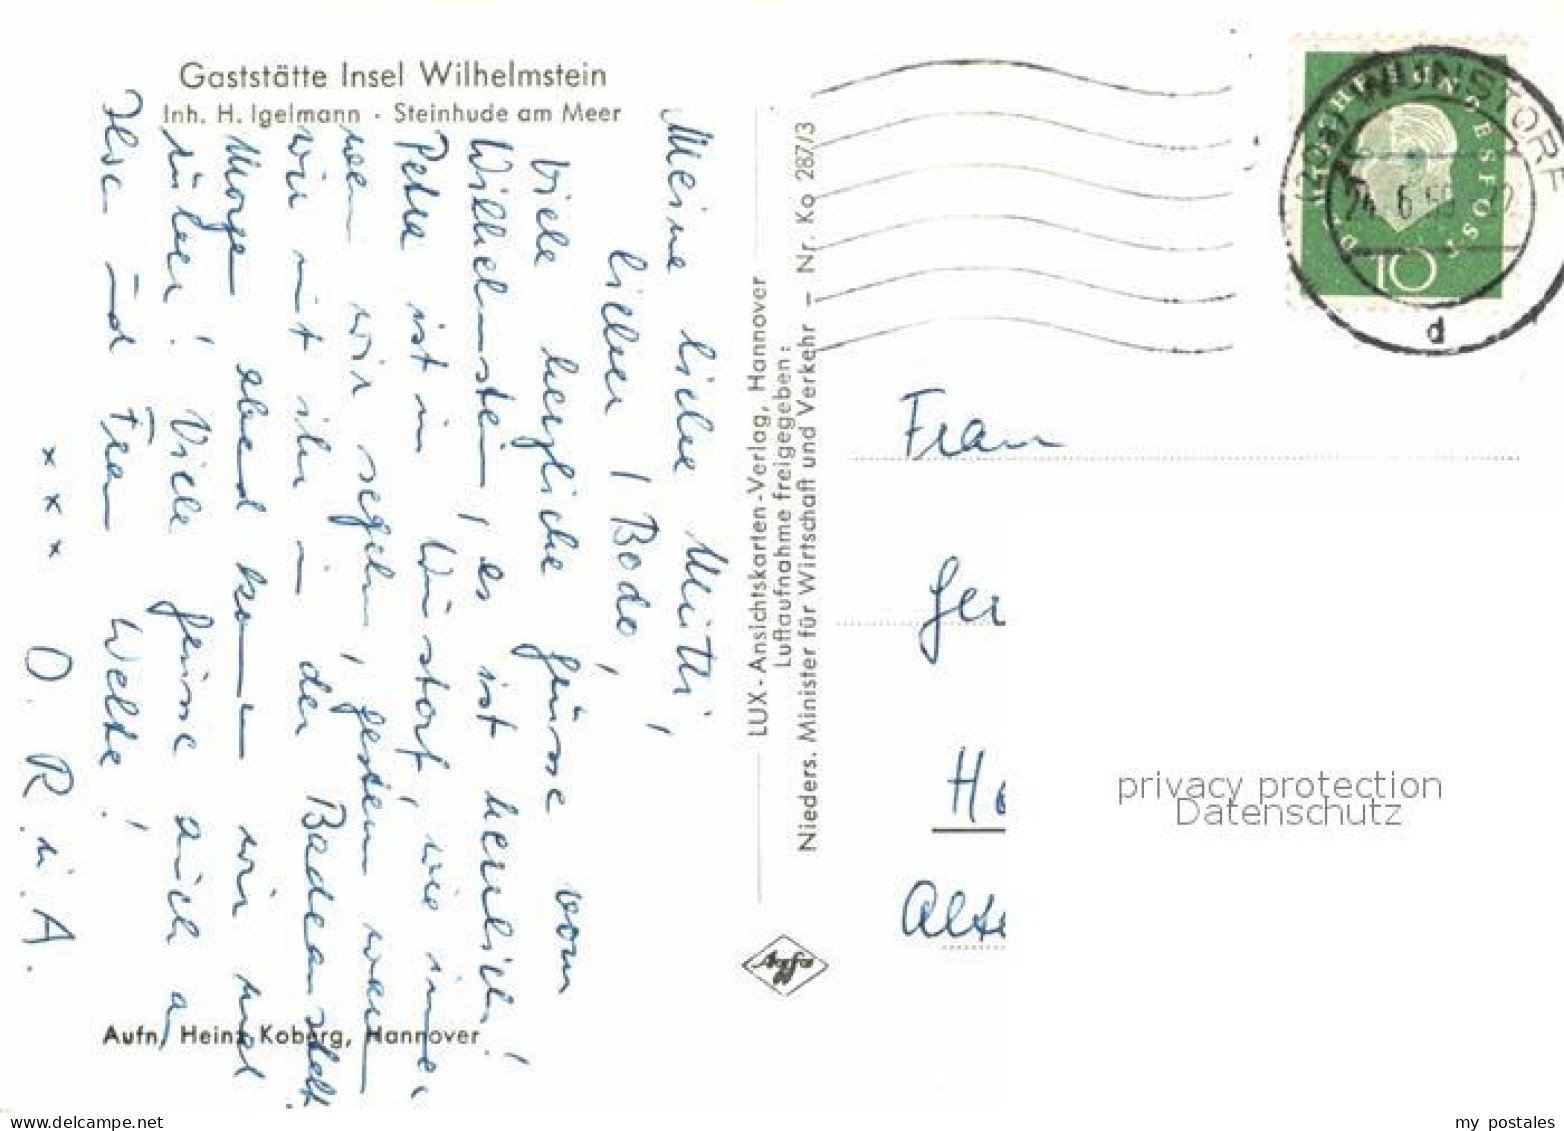 Gaststätte Insel Wilhelmstein
Inh. H. Igelmann · Steinhude am Meer
Meine liebe Mutti,
lieber Bodo,
Viele herzliche Grüsse vom
Wilhelmstein, es ist herrlich!
Petra ist in Wunstorf, wie immer
wenn wir segeln, gestern waren
wir mit ihr in der Badeanstalt.
Morgen abend kommen wir mal
rüber! Viele Grüsse auch an
Ilse und Frau Welte!
x x x O. R. u. A.
Aufn. Heinz Koberg, Hannover
LUX-Ansichtskarten-Verlag, Hannover
Luftaufnahme freigegeben:
Nieders. Minister für Wirtschaft und Verkehr – Nr. Ko 287/3
Agfa
(20a) WUNSTORF
24.6.59
d
D. BUNDESPOST
10
Frau
Ger
Ha
Alte
privacy protection
Datenschutz
delcampe.net
my_postales